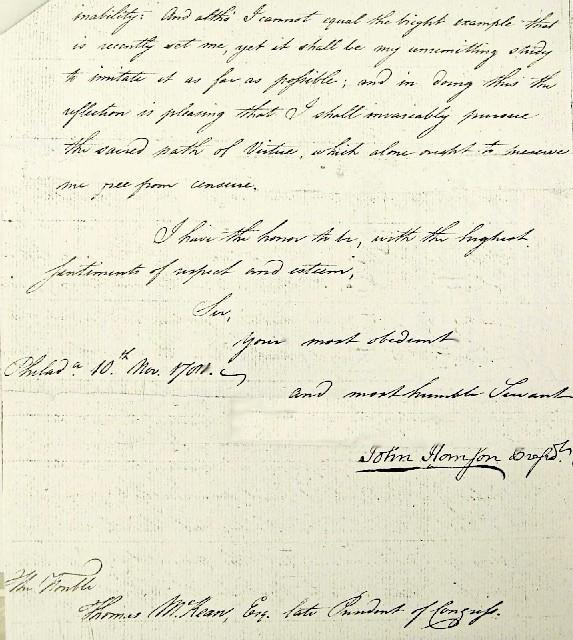 inability: And altho' I cannot equal the bright example that
is recently set me, yet it shall be my unremitting study
to imitate it as far as possible; and in doing this the
reflection is pleasing that I shall invariably pursue
the sacred path of Virtue, which alone ought to preserve
me free from censure.
I have the honor to be, with the highest
sentiments of respect and esteem,
Sir,
your most obedient
Philad.a 10.th Nov. 1781.
and most humble Servant
John Hanson Presid.t
The Honble
Thomas McKean, Esq. late President of Congress.